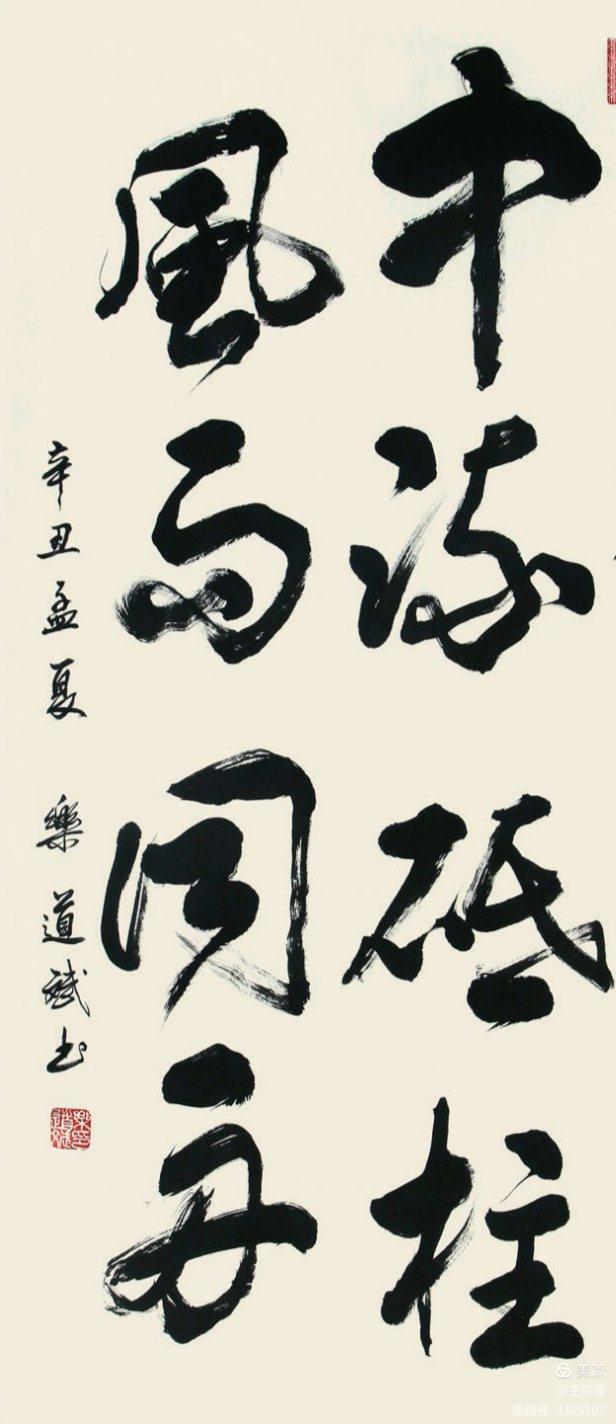 中流砥柱
風雨同舟
辛丑孟夏 樂道斌书
美篇
美篇号: 4303102